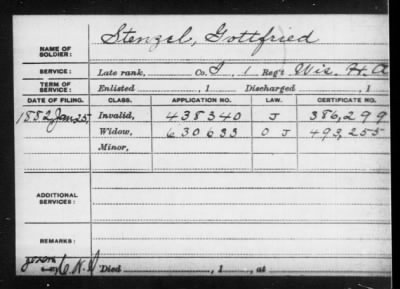 Stenzel, Gottfried
NAME OF SOLDIER:
SERVICE: Late rank, Co. I, 1 Reg't Wis. H. A
TERM OF SERVICE: Enlisted , 1 Discharged , 1
DATE OF FILING. CLASS. APPLICATION NO. LAW. CERTIFICATE NO.
1882 Jan 25, Invalid, 438340 J 386,299
Widow, 630633 O J 493,255
Minor,
ADDITIONAL SERVICES:
REMARKS:
Died , 1 , at